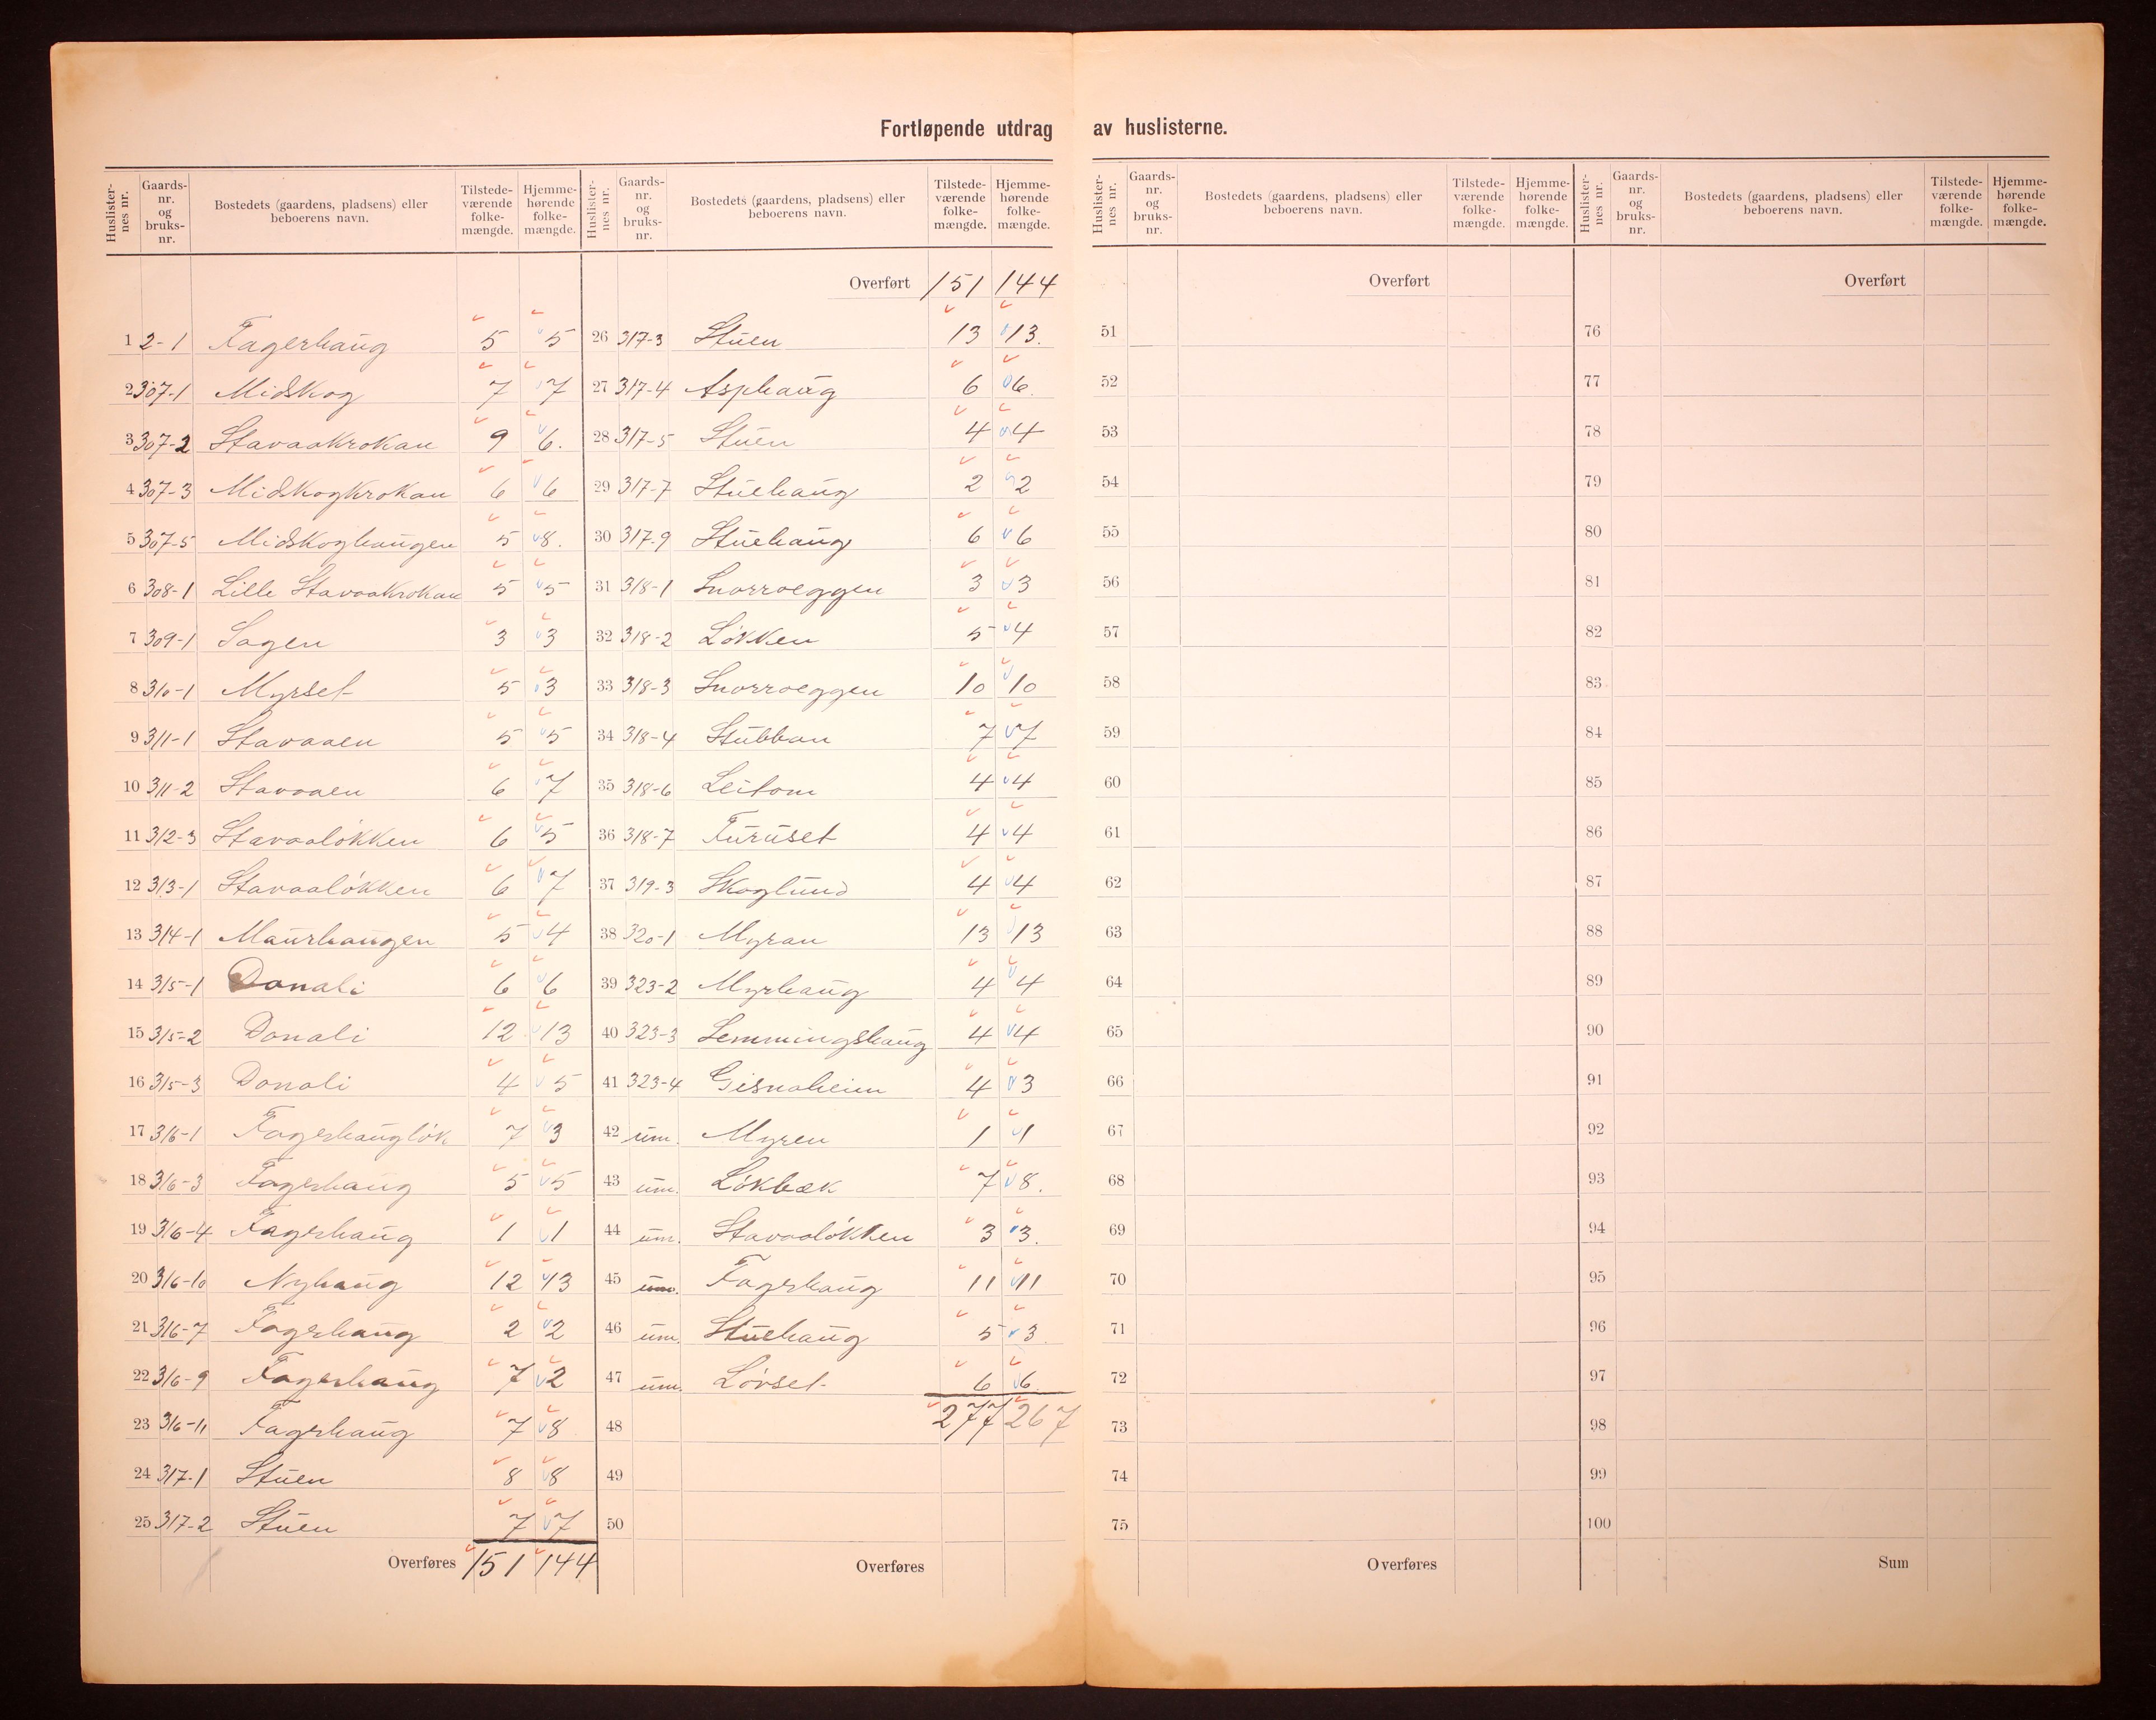 Fortløpende utdrag av huslisterne.
Huslister-nes nr. Gaards-nr. og bruks-nr. Bostedets (gaardens, pladsens) eller beboerens navn. Tilstede-værende folke-mængde. Hjemme-hørende folke-mængde.
1 2-1 Fagerhaug 5 5
2 307-1 Midskog 7 7
3 307-2 Stavaakrokan 9 6.
4 307-3 Midskogkrokan 6 6
5 307-5 Midskoghaugen 5 8.
6 308-1 Lille Stavaakrokan 5 5
7 309-1 Sagen 3 3
8 310-1 Myrset 5 3
9 311-1 Stavaaen 5 5
10 311-2 Stavaaen 6 7
11 312-3 Stavaaløkken 6 5
12 313-1 Stavaaløkken 6 7
13 314-1 Maurhaugen 5 4
14 315-1 Donali 6 6
15 315-2 Donali 12 13
16 315-3 Donali 4 5
17 316-1 Fagerhaugløk 7 3
18 316-3 Fagerhaug 5 5
19 316-4 Fagerhaug 1 1
20 316-10 Nyhaug 12 13
21 316-7 Fagerhaug 2 2
22 316-9 Fagerhaug 7 2
23 316-11 Fagerhaug 7 8
24 317-1 Stuen 8 8
25 317-2 Stuen 7 7
Overføres 151 144
Huslister-nes nr. Gaards-nr. og bruks-nr. Bostedets (gaardens, pladsens) eller beboerens navn. Tilstede-værende folke-mængde. Hjemme-hørende folke-mængde.
Overført 151 144
26 317-3 Stuen 13 13.
27 317-4 Asphaug 6 6.
28 317-5 Stuen 4 4
29 317-7 Stuehaug 2 2
30 317-9 Stuehaug 6 6
31 318-1 Snorroeggen 3 3
32 318-2 Løkken 5 4
33 318-3 Snorroeggen 10 10
34 318-4 Stubban 7 7
35 318-6 Leitom 4 4
36 318-7 Furuset 4 4
37 319-3 Skoglund 4 4
38 320-1 Myran 13 13
39 323-2 Myrhaug 4 4
40 323-3 Lemmingshaug 4 4
41 323-4 Gisnaheim 4 3
42 um. Myren 1 1
43 um. Løkbæk 7 8.
44 um. Stavaaløkken 3 3.
45 um. Fagerhaug 11 11
46 um. Stuehaug 5 3.
47 um. Løvset 6 6.
48 277 267
49
50
Overføres
Huslister-nes nr. Gaards-nr. og bruks-nr. Bostedets (gaardens, pladsens) eller beboerens navn. Tilstede-værende folke-mængde. Hjemme-hørende folke-mængde.
Overført
51
52
53
54
55
56
57
58
59
60
61
62
63
64
65
66
67
68
69
70
71
72
73
74
75
Overføres
Huslister-nes nr. Gaards-nr. og bruks-nr. Bostedets (gaardens, pladsens) eller beboerens navn. Tilstede-værende folke-mængde. Hjemme-hørende folke-mængde.
Overført
76
77
78
79
80
81
82
83
84
85
86
87
88
89
90
91
92
93
94
95
96
97
98
99
100
Sum